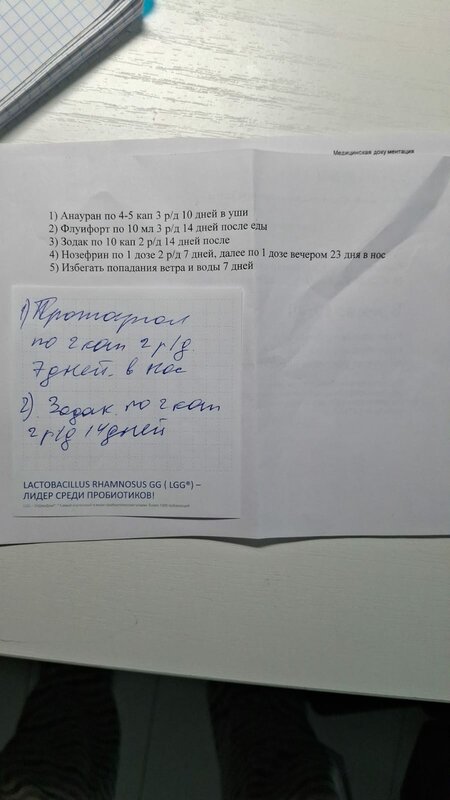 Медицинская документация
1) Анауран по 4-5 кап 3 р/д 10 дней в уши
2) Флуифорт по 10 мл 3 р/д 14 дней после еды
3) Зодак по 10 кап 2 р/д 14 дней после
4) Нозефрин по 1 дозе 2 р/д 7 дней, далее по 1 дозе вечером 23 дня в нос
5) Избегать попадания ветра и воды 7 дней
1) Протаргол
по 2 кап 2 р/д.
7 дней. в нос
2). Зодак. по 2 кап
2 р/д 14 дней
LACTOBACILLUS RHAMNOSUS GG ( LGG®) –
ЛИДЕР СРЕДИ ПРОБИОТИКОВ!